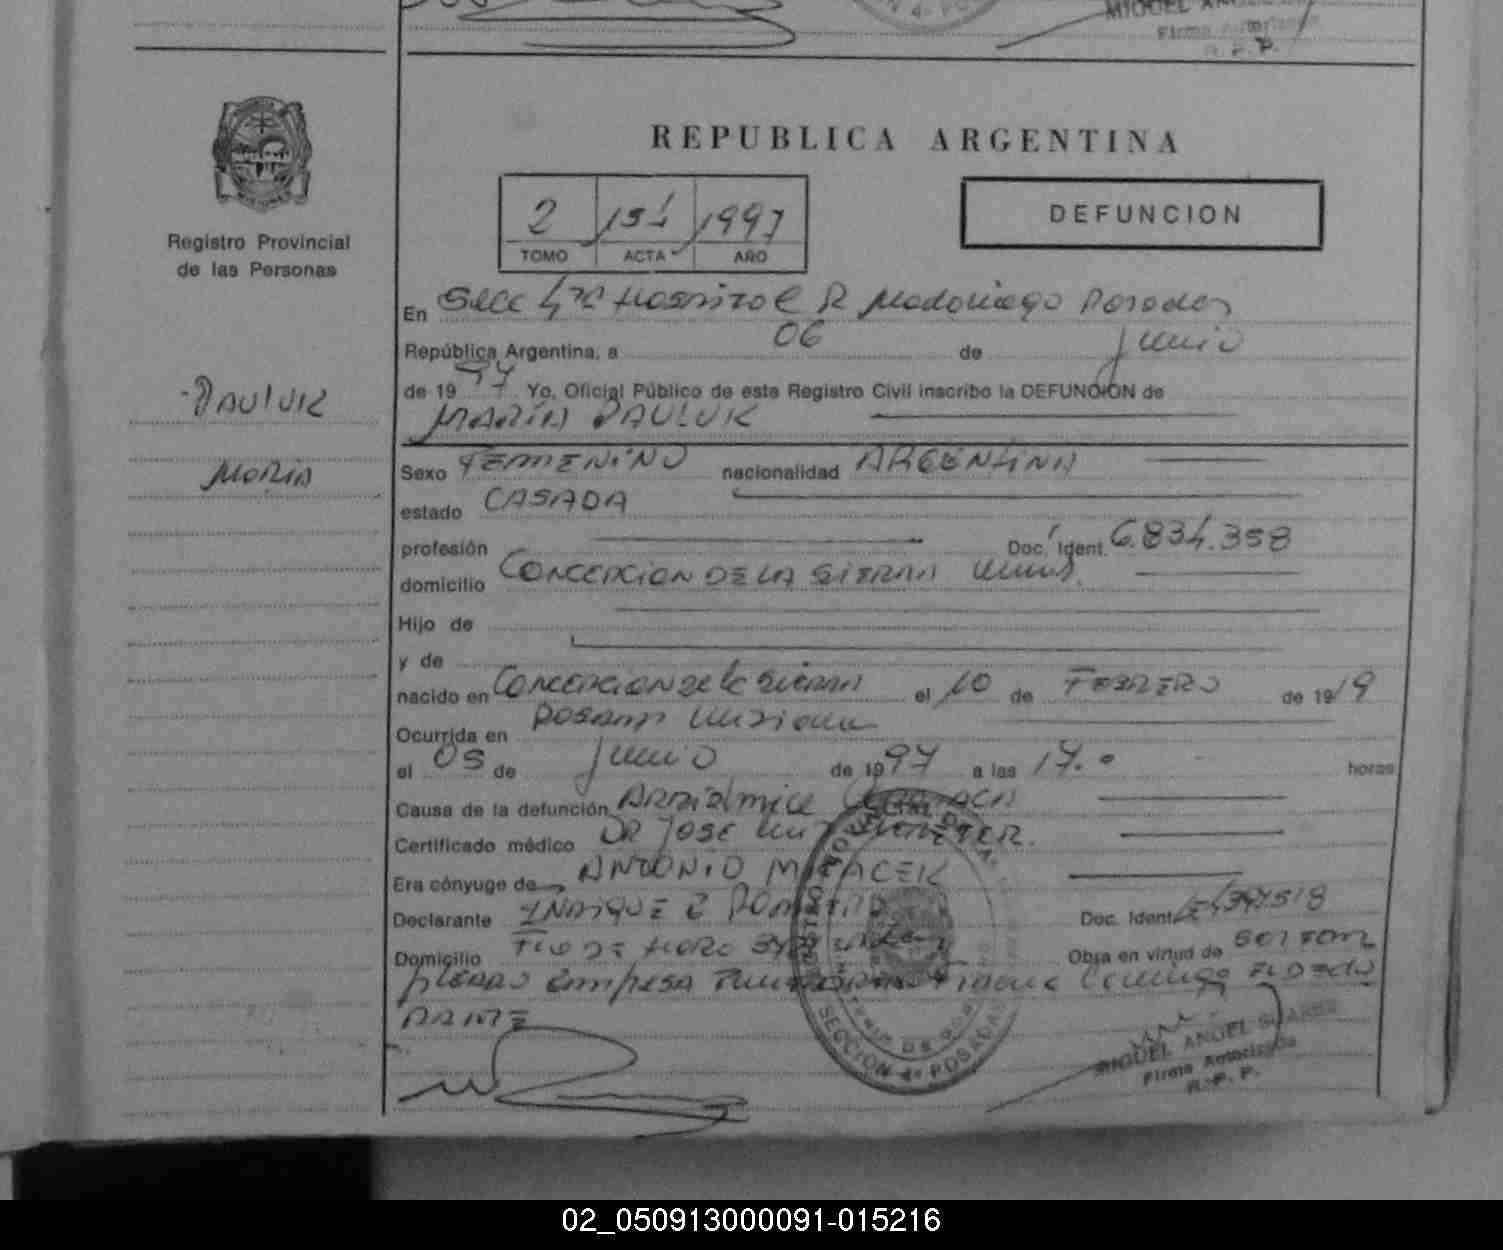 MIGUEL
Firma Autorizada
R. P. P.
REPUBLICA ARGENTINA
2 151 1997
TOMO ACTA AÑO
DEFUNCION
Registro Provincial
de las Personas
En Secc 4ta Hospital R Madariaga Posadas
República Argentina, a 06 de Junio
de 19 97 Yo, Oficial Público de este Registro Civil inscribo la DEFUNCION de
PAULUK
MARÍA PAULUK
MARIA
Sexo FEMENINO nacionalidad ARGENTINA
estado CASADA
profesión Doc. Ident. 6.834.358
domicilio CONCEPCION DE LA SIERRA
Hijo de
y de
nacido en Concepcion de la Sierra el 10 de FEBRERO de 19 19
Ocurrida en Posadas Misiones
el 05 de Junio de 19 97 a las 17.0 horas
Causa de la defunción
Certificado médico DR JOSE
Era cónyuge de ANTONIO
Declarante ENRIQUE Doc. Ident.
Domicilio Obra en virtud de
Empresa
SECCION 4ª POSADAS
MIGUEL ANGEL SUAREZ
Firma Autorizada
R. P. P.
02_050913000091-015216